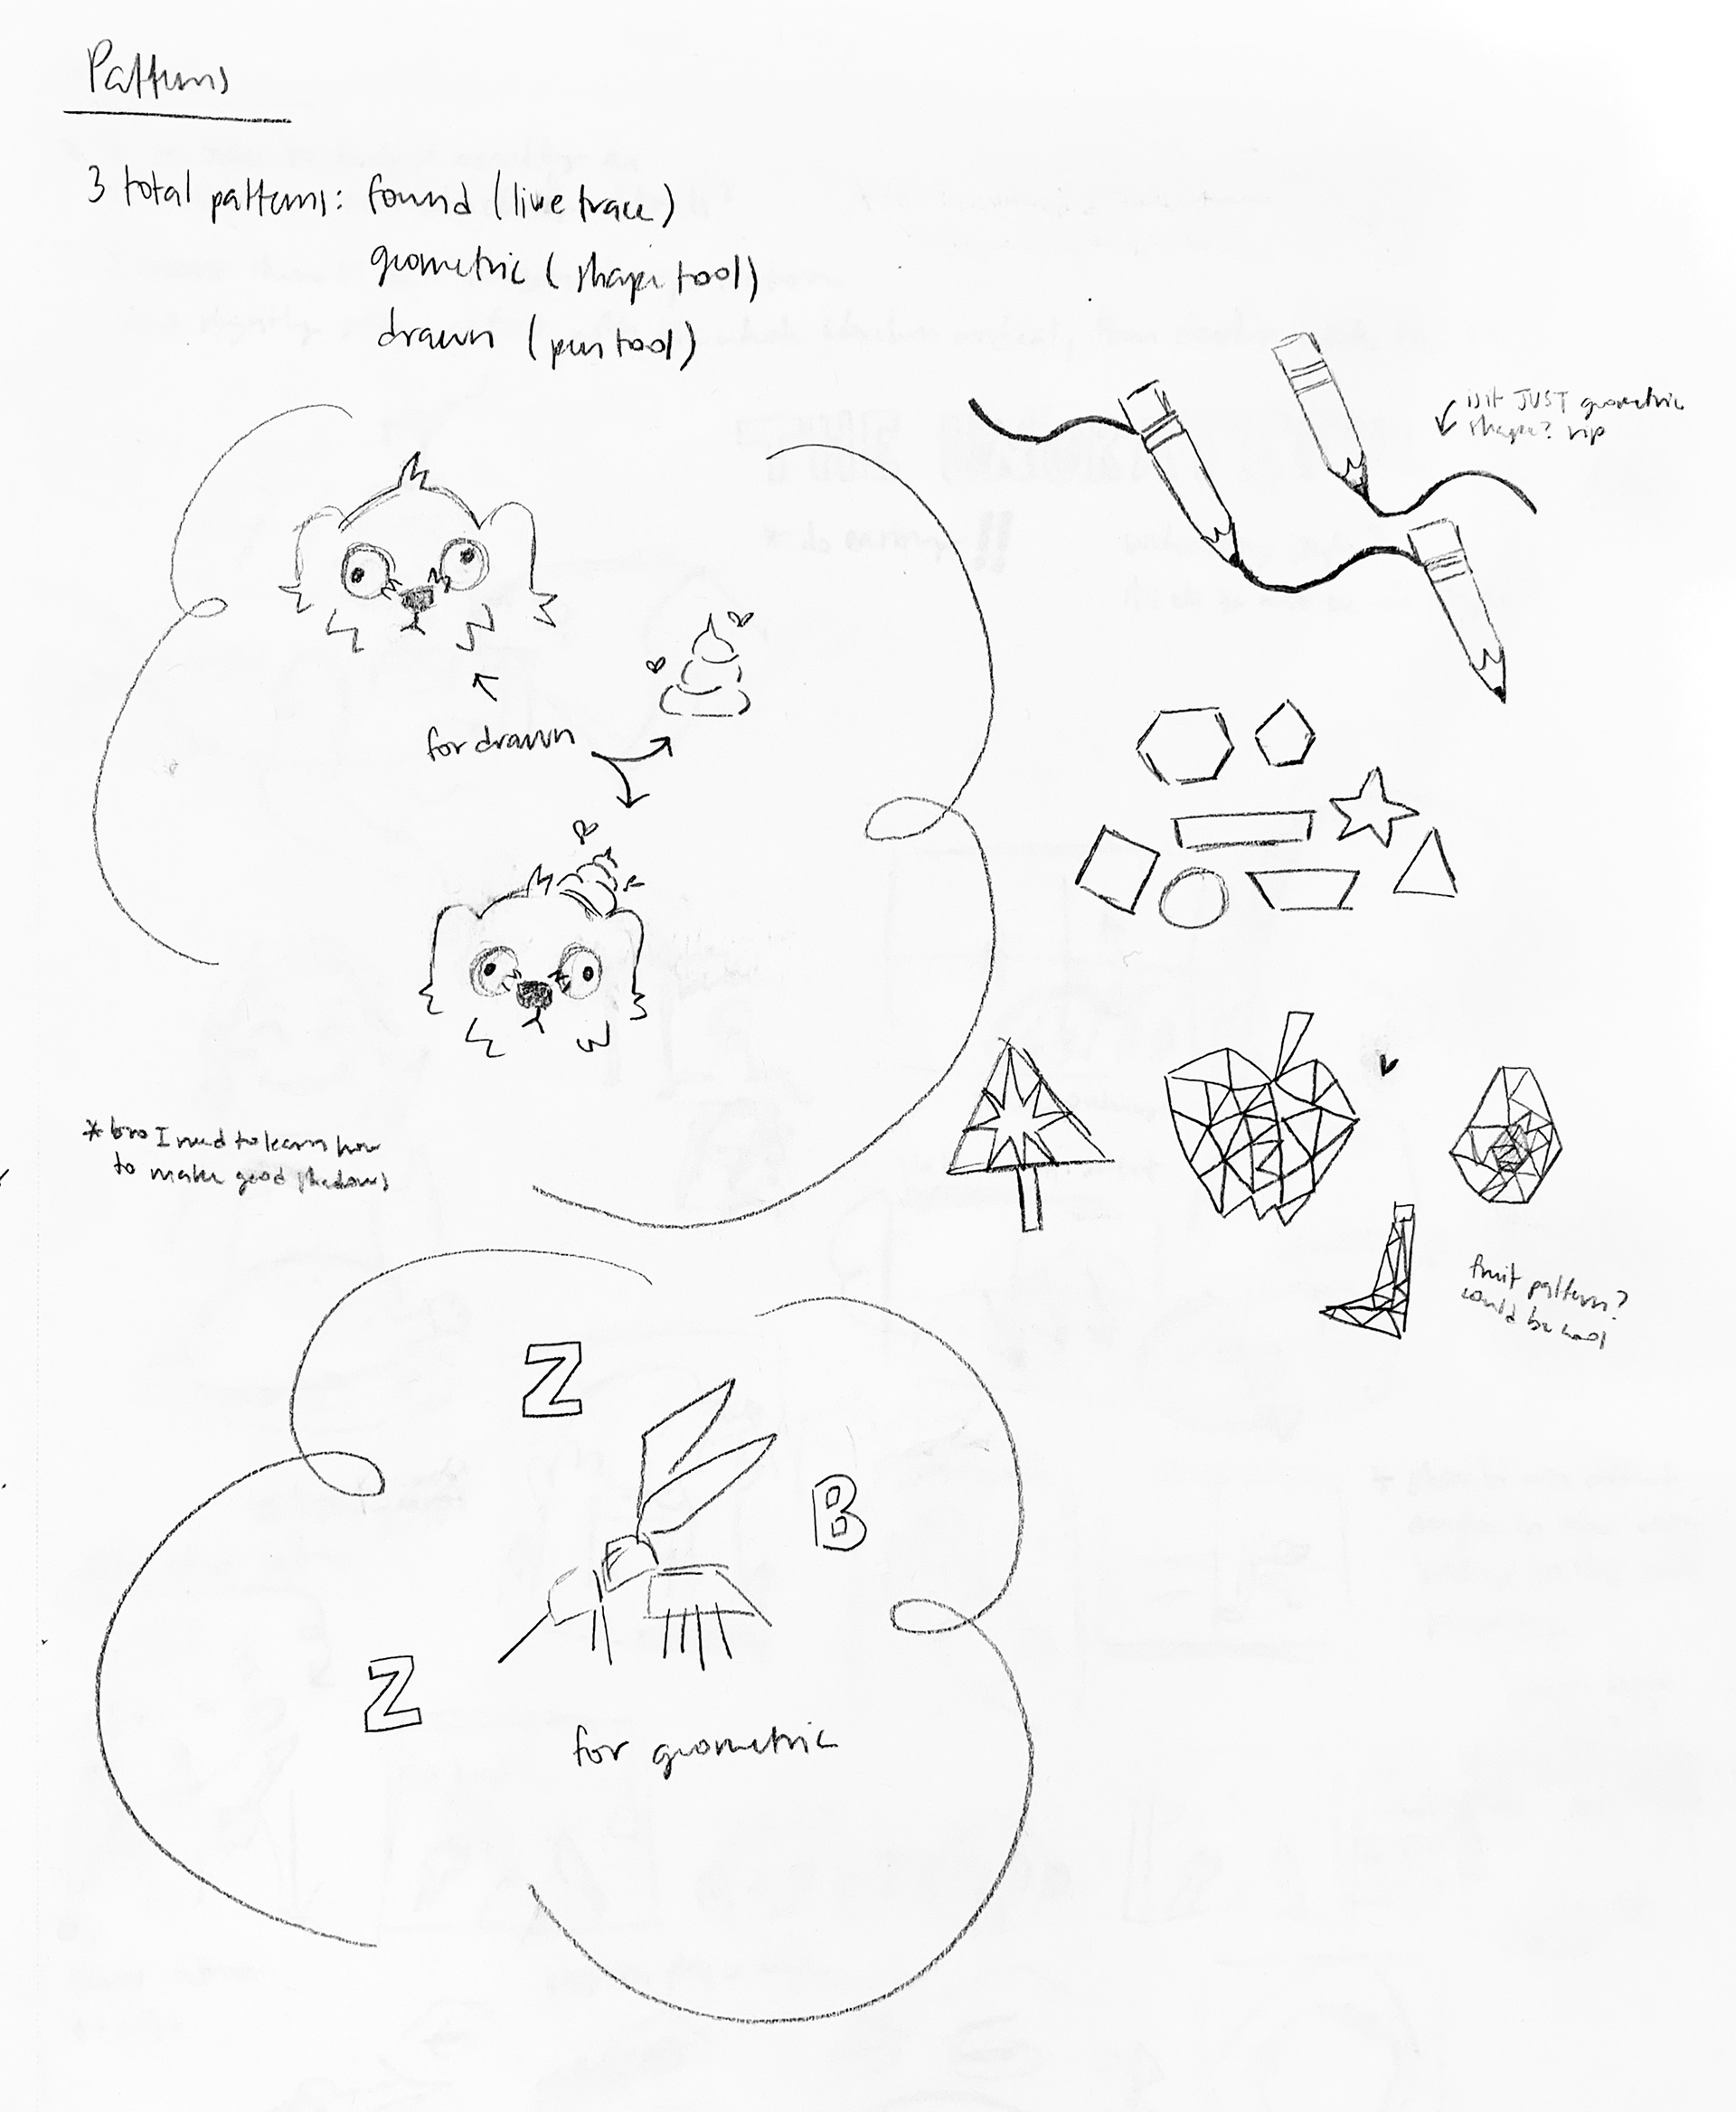 Patterns
3 total patterns: found (live trace)
geometric (shape tool)
drawn (pen tool)
is it JUST geometric
shape? rip
for drawn
* bro I need to learn how
to make good shadows
fruit pattern?
could be cool
Z
B
Z
for geometric